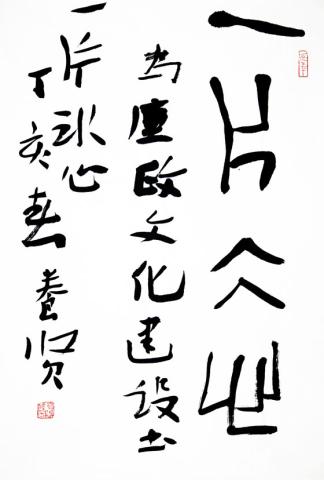 一片冰心
为廉政文化建设书
一片冰心
丁亥春 养贤